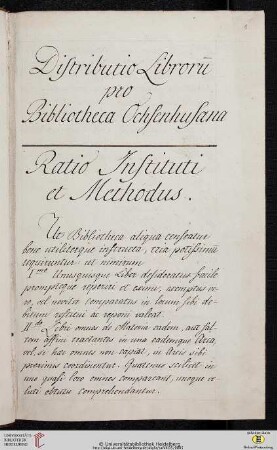 Distributio Librorū
pro
Bibliotheca Ochsenhusana
Ratio Instituti
et Methodus.
Ut Bibliotheca aliqua censeatur
bene utiliterque instructa, tria potissimum
requiruntur: ut nimirum
I.mo Unusquisque Liber desideratus facile
prompteque reperiri et eximi, acceptus ve-
ro, vel noviter comparatus in locum sibi de-
bitum restitui ac reponi valeat.
II.do Libri omnes de Materia eadem, aut sal-
tem affini tractantes in una eademque Arca,
vel, si hac omnes non capiat, in Arcis sibi
proximis coordinentur. Quatenus scilicet in
uno quasi loco omnes compareant, unoque ve-
luti obtutu comprehendantur.
UNIVERSITÄTS-
BIBLIOTHEK
HEIDELBERG
© Universitätsbibliothek Heidelberg